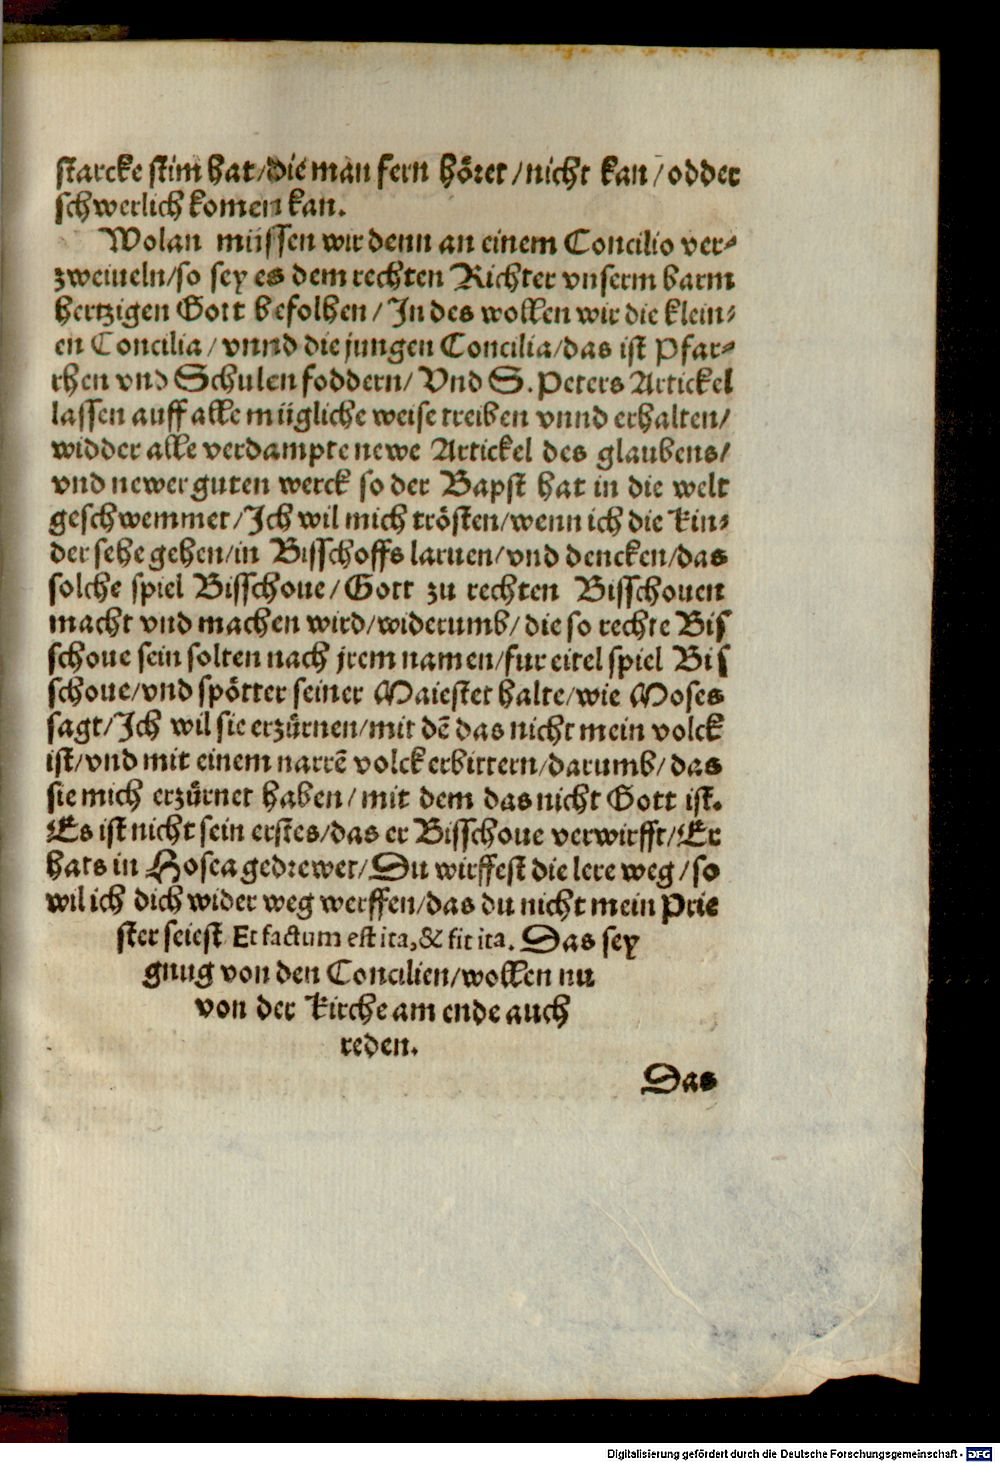 starcke stim hat/die man fern höret/nicht kan/odder
schwerlich komen kan.
Wolan müssen wir denn an einem Concilio ver⸗
zweiueln/so sey es dem rechten Richter vnserm barm
hertzigen Gott befolhen/In des wollen wir die klein⸗
en Concilia/vnnd die jungen Concilia/das ist Pfar⸗
rhen vnd Schulen foddern/Vnd S. Peters Artickel
lassen auff alle mügliche weise treiben vnnd erhalten/
widder alle verdampte newe Artickel des glaubens/
vnd newer guten werck so der Bapst hat in die welt
geschwemmet/Ich wil mich trösten/wenn ich die Kin⸗
der sehe gehen/in Bisschoffs laruen/vnd dencken/das
solche spiel Bisschoue/Gott zu rechten Bisschouen
macht vnd machen wird/widerumb/die so rechte Bis
schoue sein solten nach jrem namen/fur eitel spiel Bis
schoue/vnd spötter seiner Maiestet halte/wie Moses
sagt/Ich wil sie erzürnen/mit dē das nicht mein volck
ist/vnd mit einem narrē volck erbittern/darumb/das
sie mich erzürnet haben/mit dem das nicht Gott ist.
Es ist nicht sein erstes/das er Bisschoue verwirfft/Er
hats in Hosea gedrewet/Du wirffest die lere weg/so
wil ich dich wider weg werffen/das du nicht mein Prie
ster seiest Et factum est ita, & fit ita. Das sey
gnug von den Concilien/wollen nu
von der Kirche am ende auch
reden.
Das
Digitalisierung gefördert durch die Deutsche Forschungsgemeinschaft - DFG